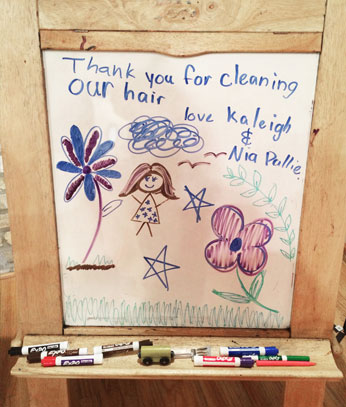 Thank you for cleaning
our hair
love Kaleigh
&
Nia Pallie.
EXPO
EXPO
EXPO